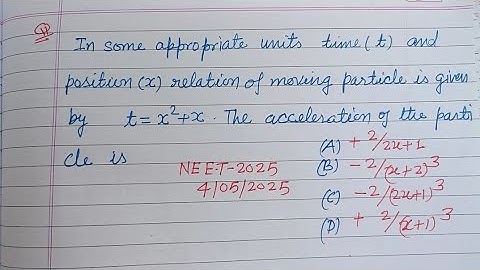 Q In some appropriate units time (t) and
position (x) relation of moving particle is given
by t = x²+x. The acceleration of the parti
cle is
(A) + 2/2x+1
NEET-2025
(B) - 2/(x+2)³
4/05/2025
(C) - 2/(2x+1)³
(D) + 2/(x+1)³